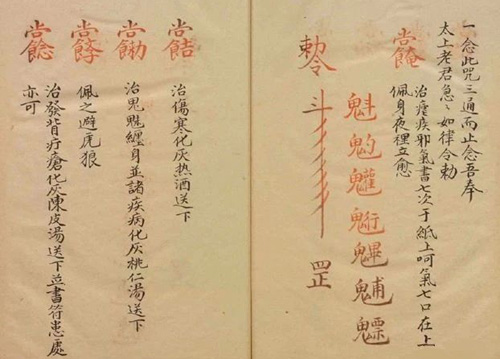 一念此咒三通而止念吾奉
太上老君急〻如律令勅
治瘧疾邪氣書七次于紙上呵氣七口在上
佩身夜裡立愈
魁𩲃䰢魓魒
勅令斗罡
治傷寒化灰热酒送下
治鬼魅纏身並諸疾病化灰桃仁湯送下
佩之避虎狼
治發背疔瘡化灰陳皮湯送下並書符患處
亦可